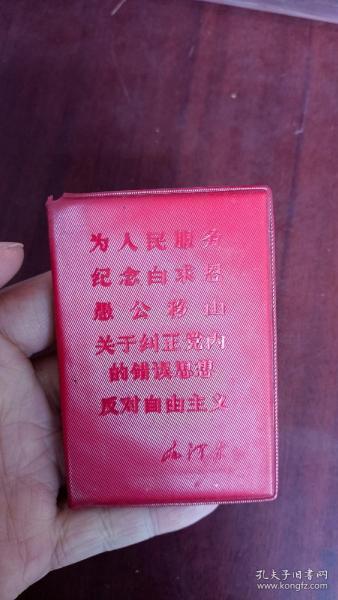 为人民服务
纪念白求恩
愚公移山
关于纠正党内
的错误思想
反对自由主义
毛泽东
孔夫子旧书网
www.kongfz.com